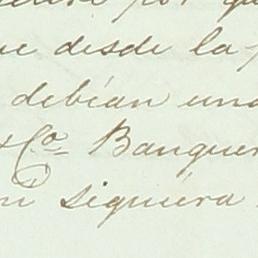 por qu
e desde la p
debían una
& Co Banquer
n siquiera